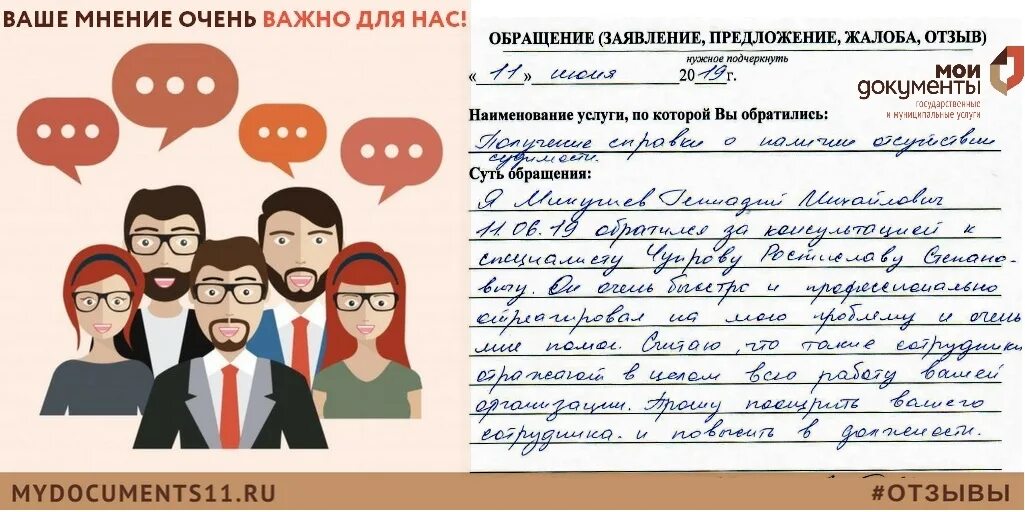 ВАШЕ МНЕНИЕ ОЧЕНЬ ВАЖНО ДЛЯ НАС!
ОБРАЩЕНИЕ (ЗАЯВЛЕНИЕ, ПРЕДЛОЖЕНИЕ, ЖАЛОБА, ОТЗЫВ)
нужное подчеркнуть
« 11 » июня 2019г.
МОИ
ДОКУМЕНТЫ
государственные
и муниципальные услуги
Наименование услуги, по которой Вы обратились:
Получение справки о наличии отсутствии
судимости.
Суть обращения:
Я Геннадий Михайлович
11.06.19 обратился за консультацией к
специалисту Чупрову Ростиславу Степано-
вичу. Он очень быстро и профессионально
отреагировал на мою проблему и очень
мне помог. Считаю, что такие сотрудники
отражают в целом всю работу вашей
организации. Прошу поощрить вашего
сотрудника и повысить в должности.
MYDOCUMENTS11.RU
#ОТЗЫВЫ